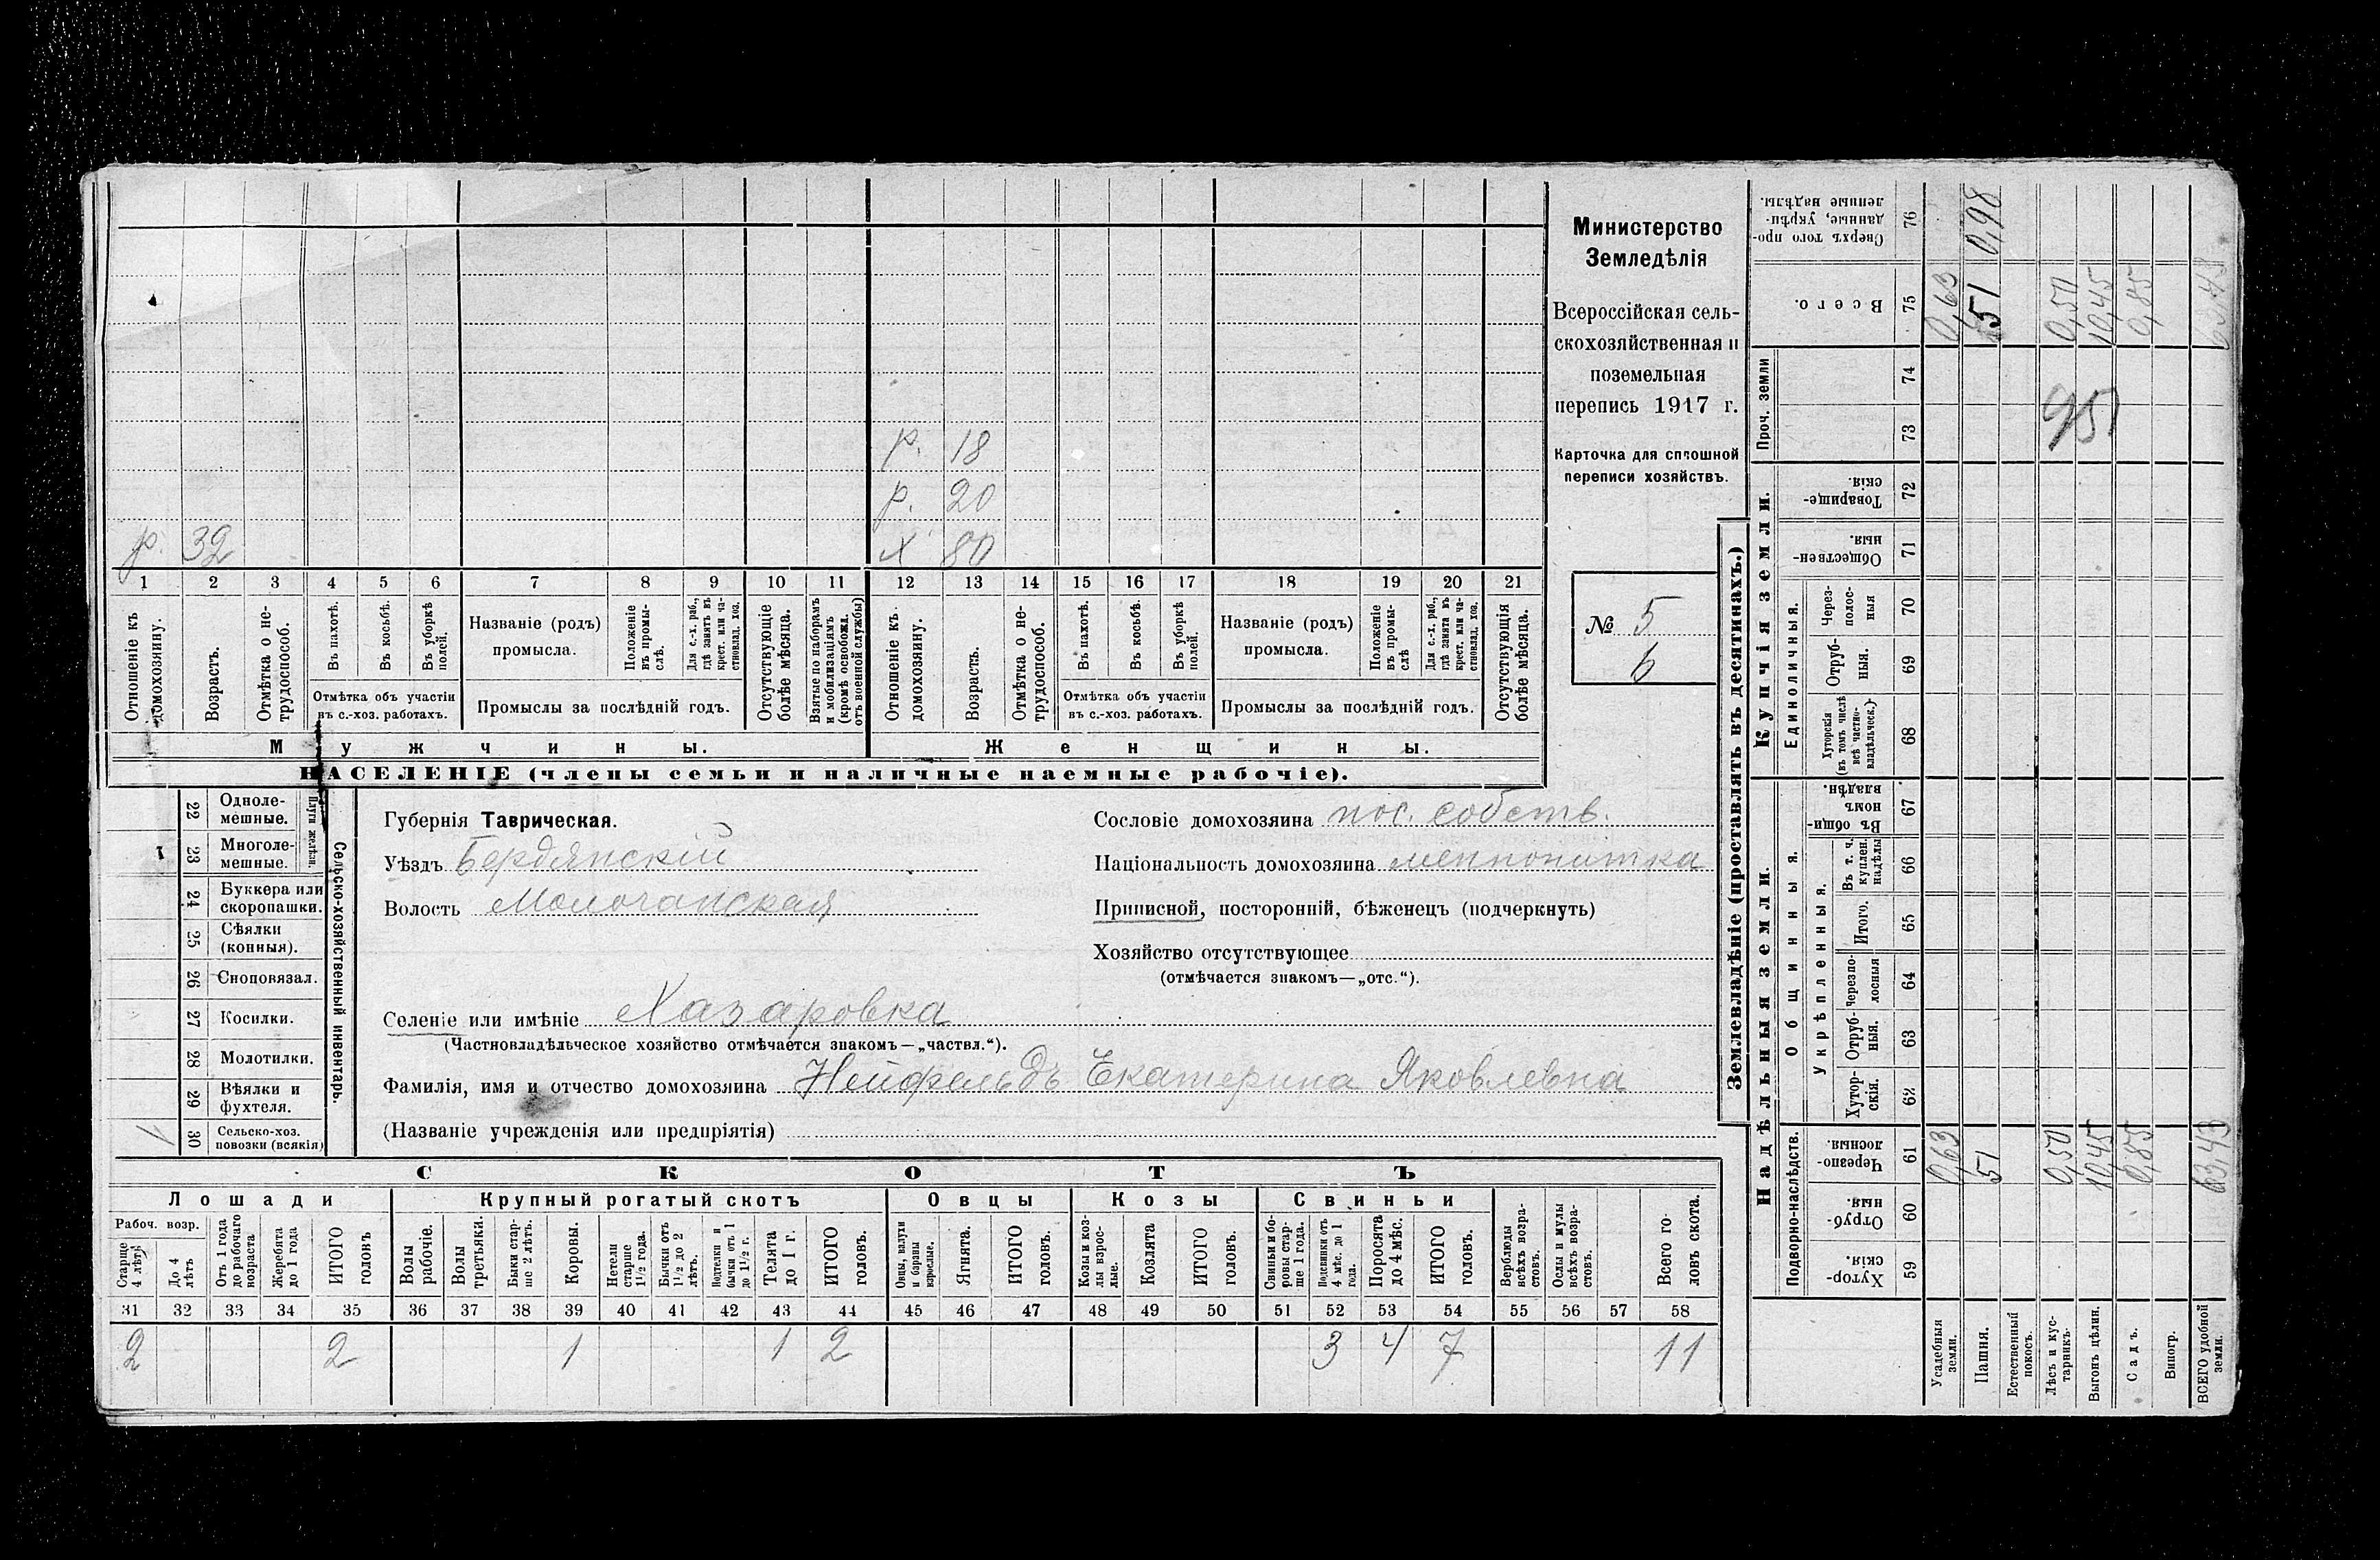 р. 18
р. 20
р. 32 х 80
1 2 3 4 5 6 7 8 9 10 11 12 13 14 15 16 17 18 19 20 21
Отношеніе къ домохозяину.
Возрастъ.
Отмѣтка о нетрудоспособ.
Въ пахотѣ.
Въ косьбѣ.
Въ уборкѣ полей.
Отмѣтка объ участіи
въ с.-хоз. работахъ.
Названіе (родъ)
промысла.
Положеніе въ промыслѣ.
Для с.-х. раб., гдѣ занятъ въ крест. или частновлад. хоз.
Промыслы за послѣдній годъ.
Отсутствующіе болѣе мѣсяца.
Взятые по наборамъ и мобилизаціямъ (кромѣ освобожд. отъ военной службы)
Отношеніе къ домохозяину.
Возрастъ.
Отмѣтка о нетрудоспособ.
Въ пахотѣ.
Въ косьбѣ.
Въ уборкѣ полей.
Отмѣтка объ участіи
въ с.-хоз. работахъ.
Названіе (родъ)
промысла.
Положеніе въ промыслѣ
Для с.-х. раб., гдѣ занята въ крест. или частновлад. хоз.
Промыслы за послѣдній годъ.
Отсутствующія болѣе мѣсяца.
Мужчины. Женщины.
НАСЕЛЕНІЕ (члены семьи и наличные наемные рабочіе).
Министерство
Земледѣлія
Всероссійская сель-
скохозяйственная и
поземельная
перепись 1917 г.
Карточка для сплошной
переписи хозяйствъ.
№ 5
6
22 Одноле-
мешные.
23 Многоле-
мешные.
Плуги желѣзн.
24 Буккера или
скоропашки.
25 Сѣялки
(конныя).
26 Сноповязал.
27 Косилки.
28 Молотилки.
29 Вѣялки и
фухтеля.
30 Сельско-хоз.
повозки (всякія)
1
Сельско-хозяйственный инвентарь.
Губернія Таврическая.
Уѣздъ Бердянскій
Волость Молочанская
Селеніе или имѣніе Хазаровка
(Частновладѣльческое хозяйство отмѣчается знакомъ—„частвл.“).
Фамилія, имя и отчество домохозяина Нейфельдъ Екатерина Яковлевна
(Названіе учрежденія или предпріятія)
Сословіе домохозяина пос. собств.
Національность домохозяина меннонитка
Приписной, посторонній, бѣженецъ (подчеркнуть)
Хозяйство отсутствующее
(отмѣчается знакомъ—„отс.“).
СКОТЪ
Лошади Крупный рогатый скотъ Овцы Козы Свиньи
Рабоч. возр.
Старше 4 лѣтъ
До 4 лѣтъ
Отъ 1 года до рабочаго возраста
Жеребята до 1 года
ИТОГО головъ
Волы рабочіе.
Волы третьяки.
Быки старше 2 лѣтъ.
Коровы.
Нетели старше 1½ года.
Бычки отъ 1½ до 2 лѣтъ.
Подтелки и бычки отъ 1 до 1½ г.
Телята до 1 г.
ИТОГО головъ.
Овцы, валухи и бараны взрослые.
Ягнята.
ИТОГО головъ.
Козы и козлы взрослые.
Козлята
ИТОГО головъ.
Свиньи и боровы старше 1 года.
Подсвинки отъ 4 мѣс. до 1 года.
Поросята до 4 мѣс.
ИТОГО головъ.
Верблюды всѣхъ возрастовъ.
Ослы и мулы всѣхъ возрастовъ.
Всего головъ скота.
31 32 33 34 35 36 37 38 39 40 41 42 43 44 45 46 47 48 49 50 51 52 53 54 55 56 57 58
2 2 1 1 2 3 4 7 11
Землевладѣніе (проставлять въ десятинахъ.)
Надѣльныя земли. Купчія земли. Проч. земли
Подворно-наслѣдств.
Общинныя.
Укрѣпленныя.
Единоличныя.
Хуторскія. 59
Отрубныя. 60
Черезполосныя. 61
Хуторскія. 62
Отрубныя. 63
Черезполосныя 64
Итого. 65
Въ т. ч. куплен. надѣлы 66
Въ общинномъ владѣн. 67
Хуторскія (въ томъ числѣ всѣ частновладѣльческ.) 68
Отрубныя. 69
Черезполосныя 70
Общественныя. 71
Товарищескія. 72
73
74
Всего. 75
Сверхъ того проданные, укрѣпленные надѣлы. 76
Усадебныя земли. 0,63 0,63
Пашня. 51 51 0,98
Естественный покосъ.
Лѣсъ и кустарникъ. 0,50 0,50
Выгонъ цѣлин. 10,45 10,45
Садъ. 0,85 0,85
Виногр.
ВСЕГО удобной земли. 63,43 63,43
951